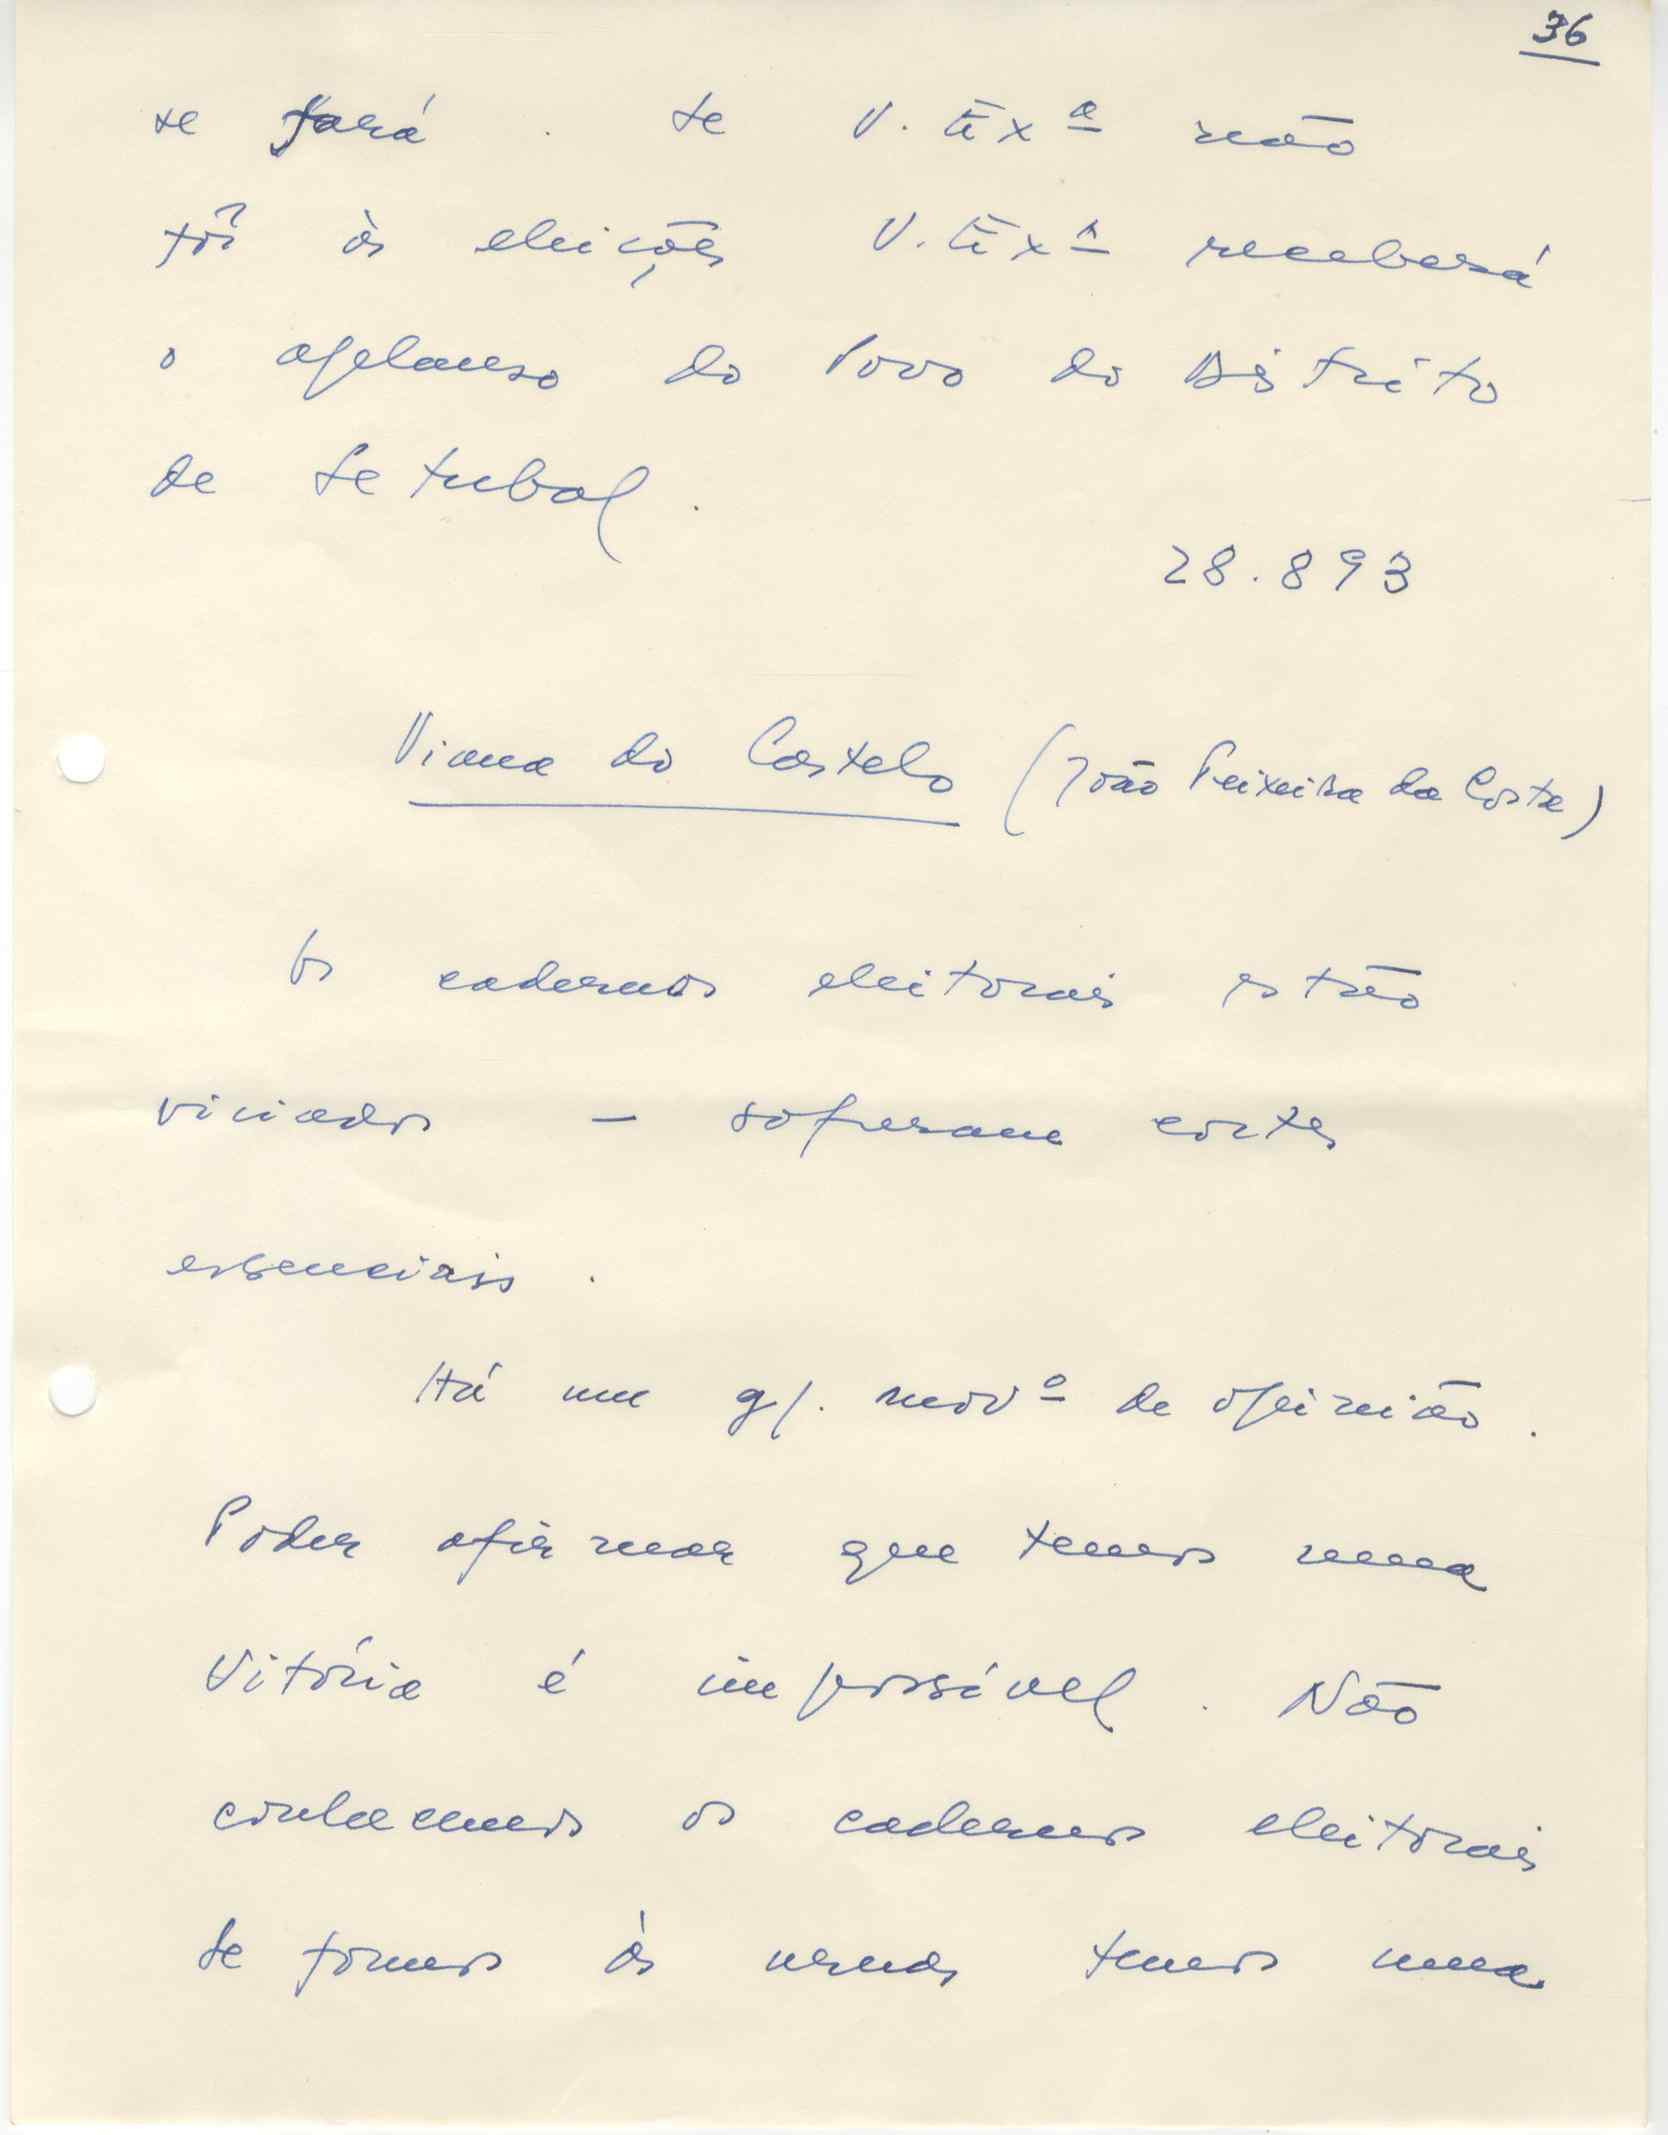 36
se fará. Se V. Exª não
fôr às eleições V. Exª receberá
o aplauso do Povo do Distrito
de Setubal.
28.893
Viana do Castelo (João Peixeira da Costa)
Os cadernos eleitorais estão
viciados - sofreram cortes
essenciais.
Há um gr. movº de opinião.
Poder afirmar que temos uma
Vitória é impossível. Não
conhecemos os cadernos eleitorais
Se formos às urnas temos uma